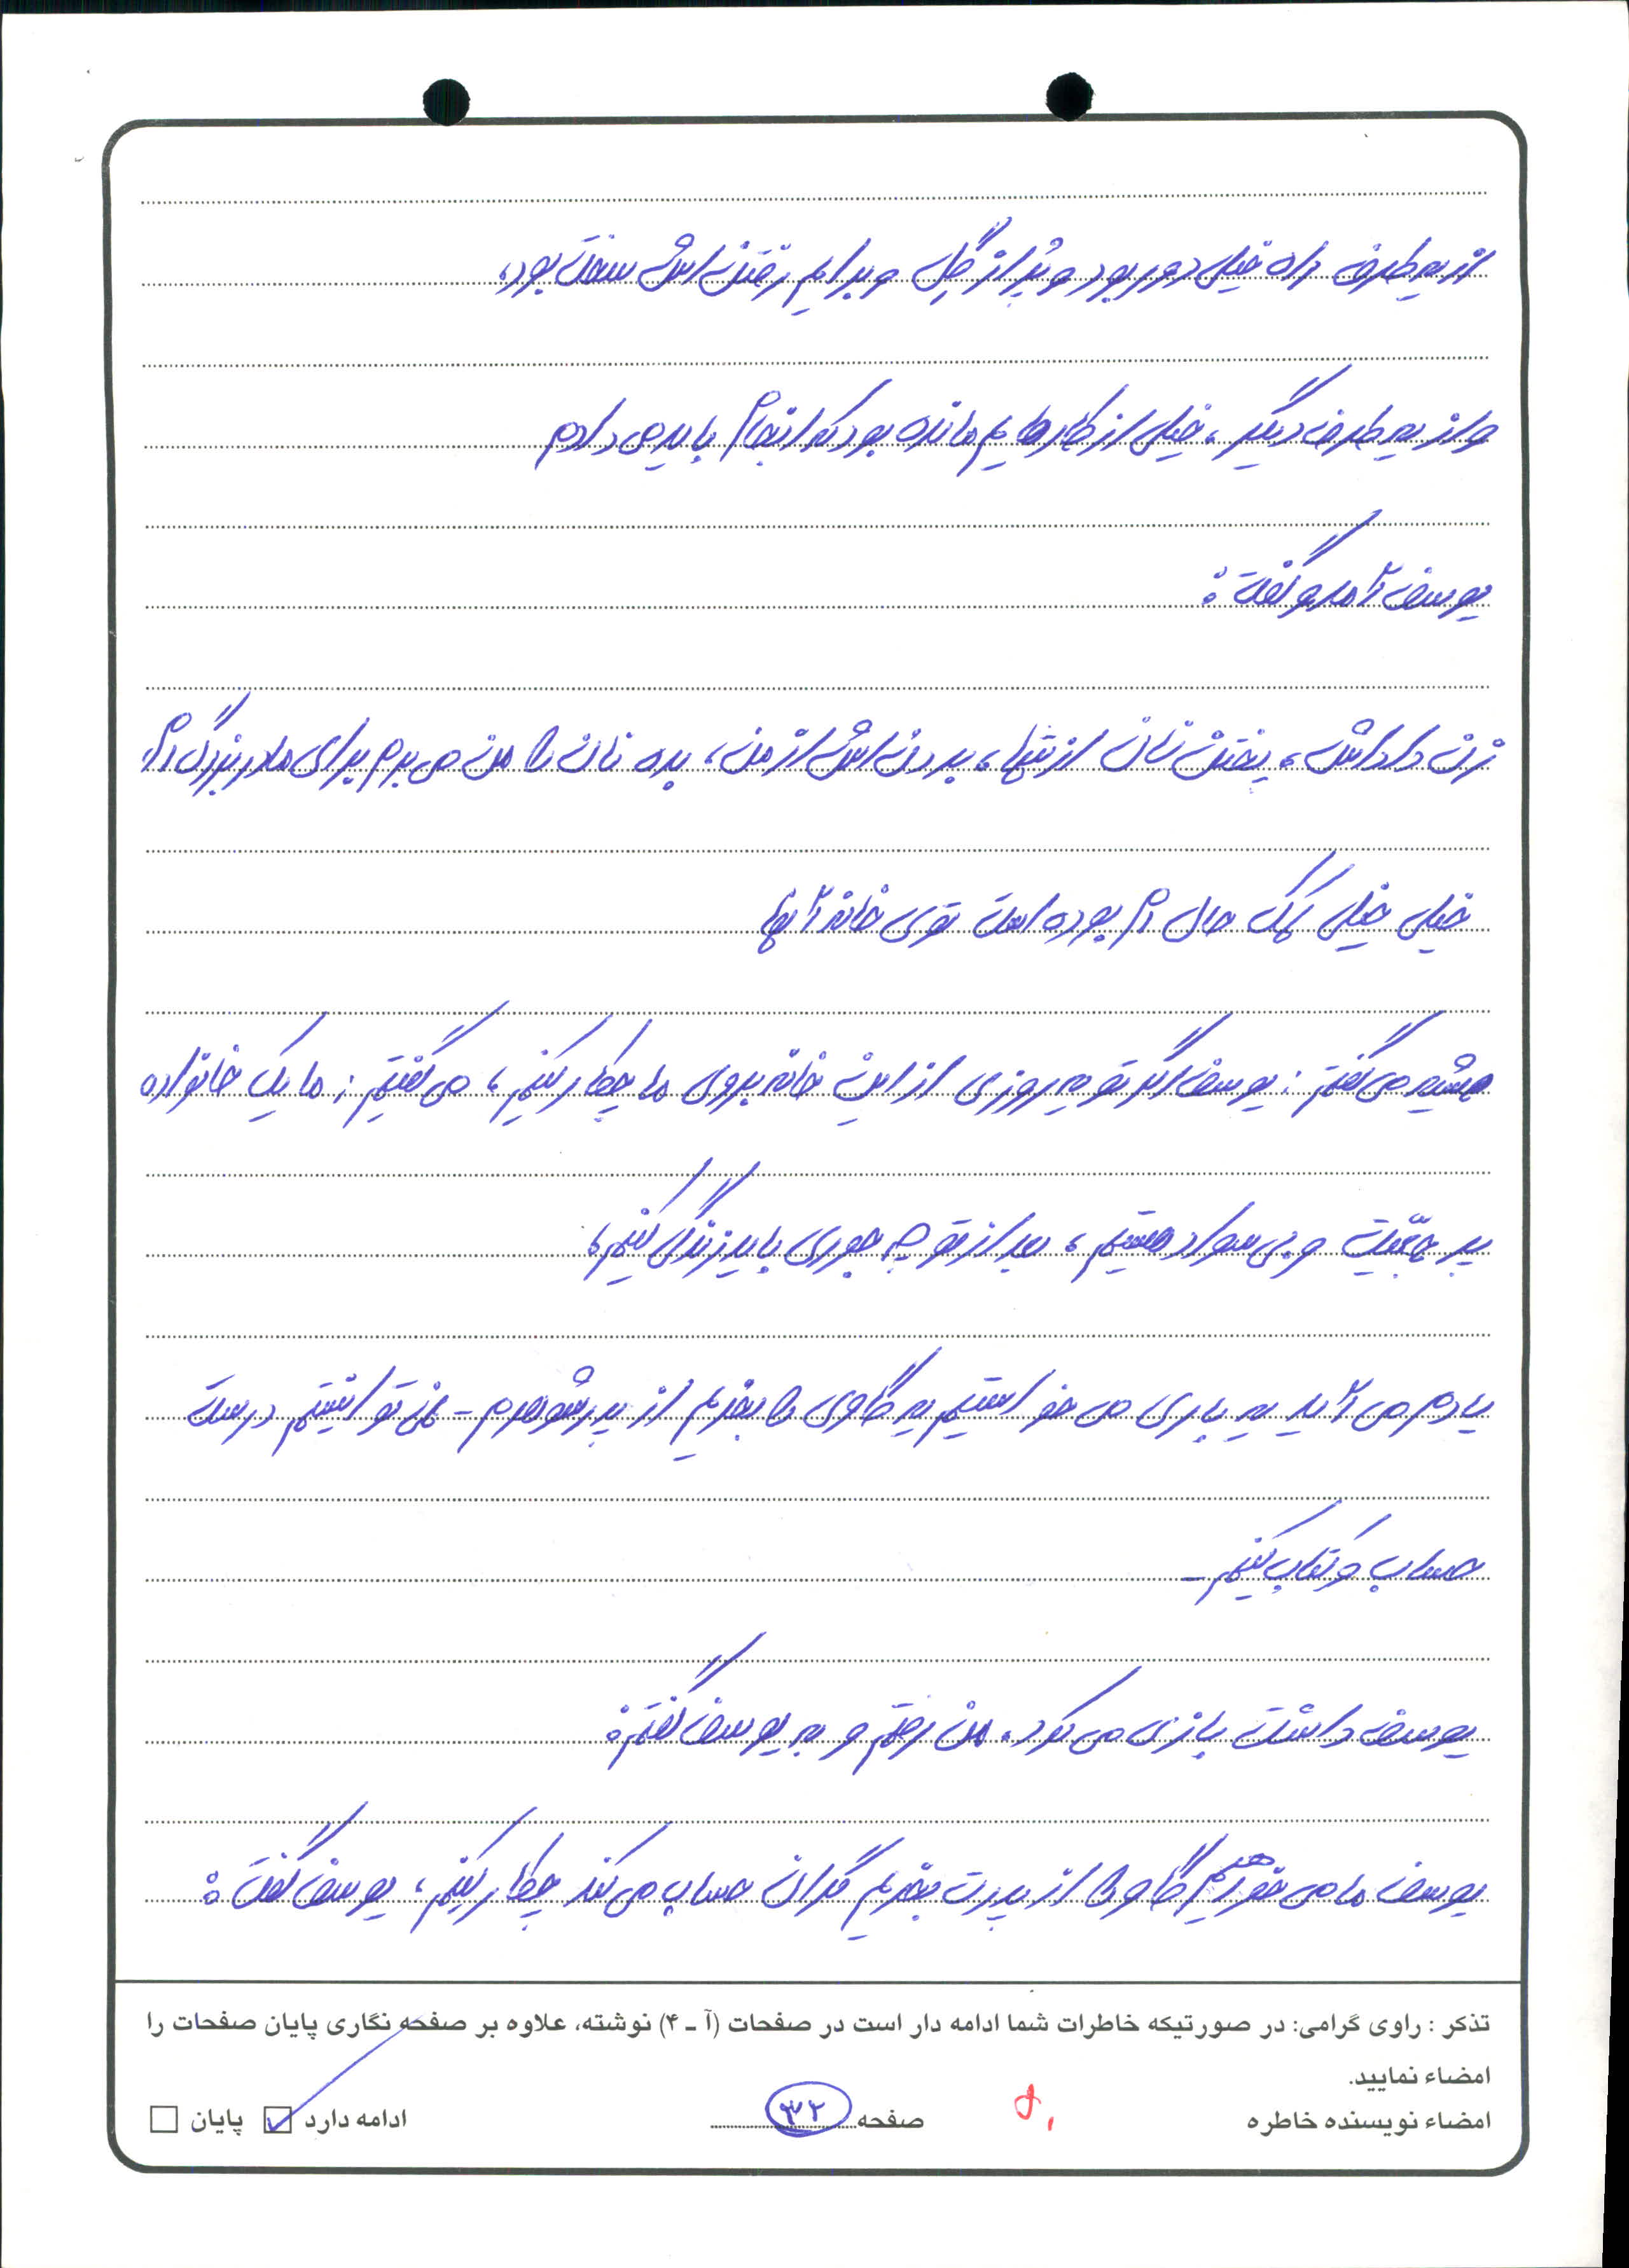 از یه طرف راه خیلی دور بود و پُر از گِل و برایم رفتن اش سخت بود،
و از یه طرف دیگر، خیلی از کارهایم مانده بود که انجام باید می دادم
یوسف آمد و گفت:
زن داداش، پختن نان از شما، بردن اش از من، بده نان را من می برم برای مادر بزرگ ام
خیلی خیلی کمک حال ام بوده است توی خانه آنها
همیشه می گفتم: یوسف اگر تو یه روزی از این خانه بروی ما چکار کنیم، می گفتیم: ما یک خانواده
پر جمعّیت و بی سواد هستیم، بعد از تو چه جوری باید زندگی کنیم،
یادم می آید یه باری می خواستیم یه گاوی را بخریم از پدر شوهرم - نمی توانستیم درست
حساب و کتاب کنیم -
یوسف داشت بازی می کرد، من رفتم و به یوسف گفتم:
یوسف ما می خواهیم گاو را از پدرت بخریم گران حساب می کند چکار کنیم، یوسف گفت:
تذکر : راوی گرامی: در صورتیکه خاطرات شما ادامه دار است در صفحات (آ ـ ۴) نوشته، علاوه بر صفحه نگاری پایان صفحات را
امضاء نمایید.
امضاء نویسنده خاطره صفحه ۳۲ ادامه دارد پایان